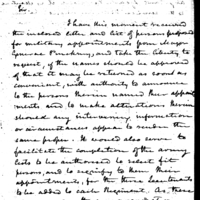 Sir,
I have this moment received
the inclosed letter and list of persons proposed
for military appointments from Major
General Pinckney, and take the liberty to
request, if the names should be approved
of that it may be returned as soon as
convenient, with authority to announce
to the persons therein named their appoint
ments and to make alterations therein
should any intervening information
or circumstances appear to render
same proper. It would also serve to
facilitate the completion of the army
lists to be authorised to select fit
persons, and to notify to them their
appointments, for the three Lieutenants
to be added to each Regiment. As, these